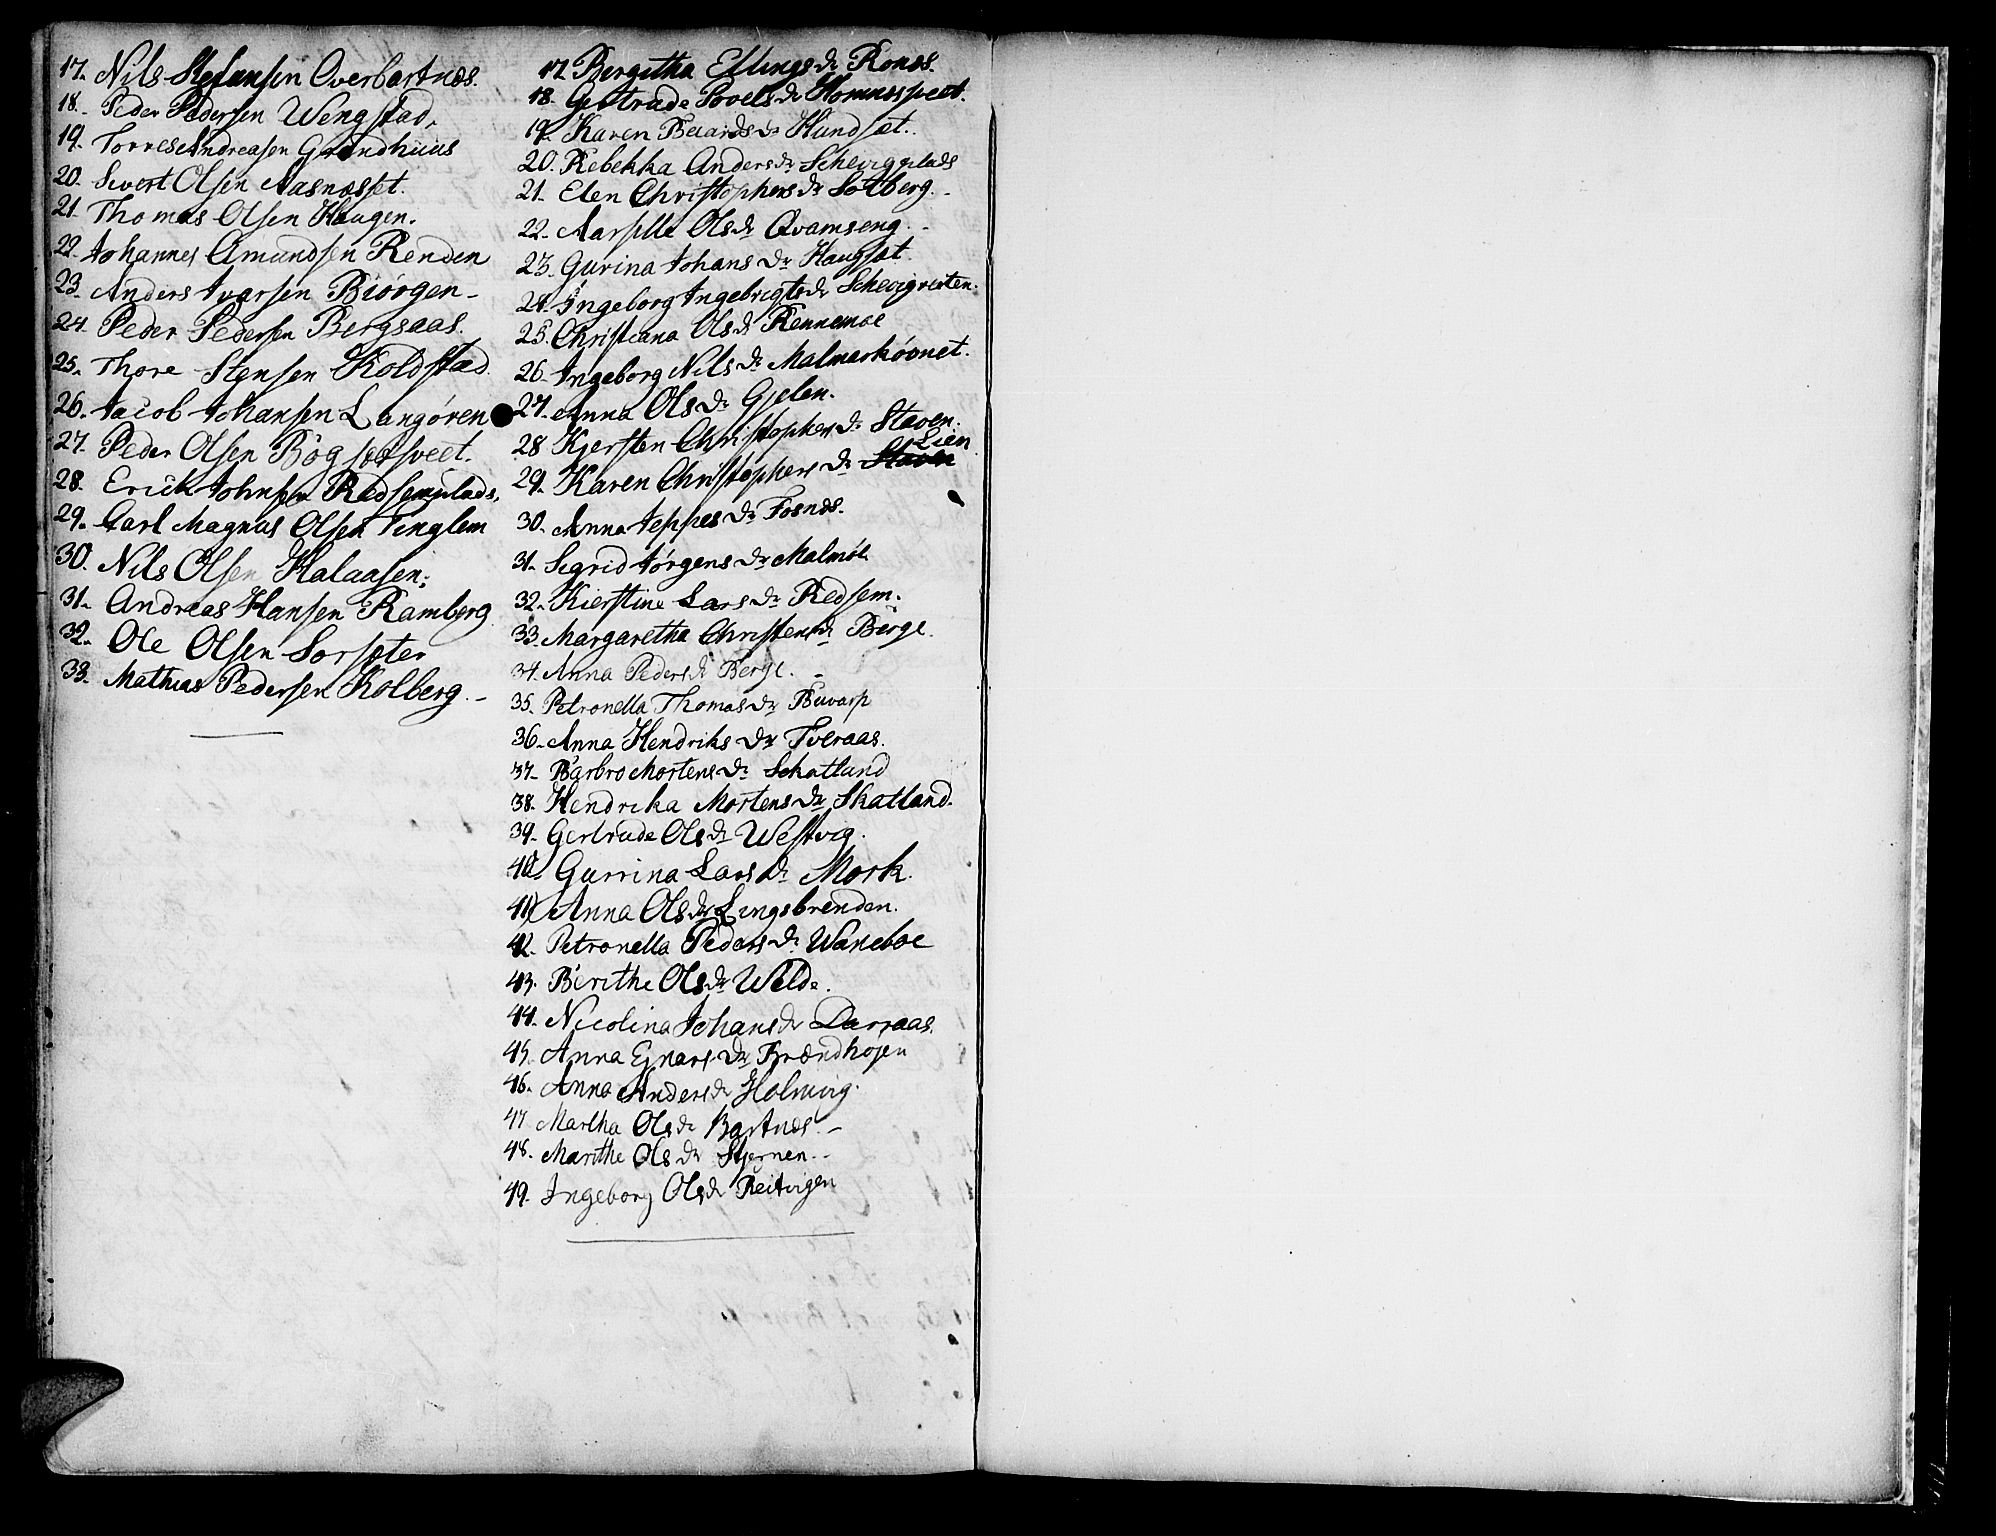 17. Nils Stefansen Overbartnæs.
18. Peder Pedersen Wengstad.
19. Torres Andreasen Grandhuus
20. Sivert Olsen Aasnæsset.
21. Thomas Olsen Haugen.
22. Johannes Amundsen Renden
23. Anders Ivarsen Biörgen
24. Peder Pedersen Bergsaas.
25. Thore Stensen Koldstad
26. Jacob Johansen Langøren
27. Peder Olsen
28. Erich Johnsen Redsemplads.
29. Carl Magnus Olsen Tinglem
30. Nils Olsen Halaasen.
31. Andreas Hansen Ramberg
32. Ole Olsen Sorsæter
33. Mathias Pedersen Kolberg.
17. Bergitha Ellingsdr Ronæs.
18. Gertrude Povelsdr
19. Karen Hundsæt.
20. Rebekka Andersdr Schevigplads
21. Elen Christophersdr Solberg.
22. Olsdr Qvamseng.
23. Gurina Johansdr Haugsæt.
24. Ingeborg Ingebrigtsdr
25. Christiana Olsdr Rennemoe
26. Ingeborg Nilsdr
27. Anna Olsdr Gjelen.
28 Kjersten Christophersdr Staven.
29. Karen Christophersdr Staven Lien
30. Anna Jeppesdr Fosnæs.
31. Sigrid Jørgensdr Malmöe
32. Kierstine Larsdr Redsem.
33. Margaretha Christensdr Berge.
34. Anna Pedersdr Berge.
35. Petronella Thomasdr Buvarp
36. Anna Hendriksdr Tveraas.
37. Barbro Mortensdr Schatland
38. Hendrika Mortensdr Skatland.
39. Gertrude Olsdr Westvig.
40. Gurrina Larsdr Mork.
41) Anna Olsdr Lingsbrenden.
42. Petronella Pedersdr Waneboe
43. Berithe Olsdr Welde.
44. Nicolina Johansdr Darraas.
45. Anna Ejnarsdr Brændhojen
46. Anna Andersdr Holmvig.
47 Martha Olsdr Bartnæs.
48. Marithe Olsdr Stjernen.
49. Ingeborg Olsdr Reitvigen